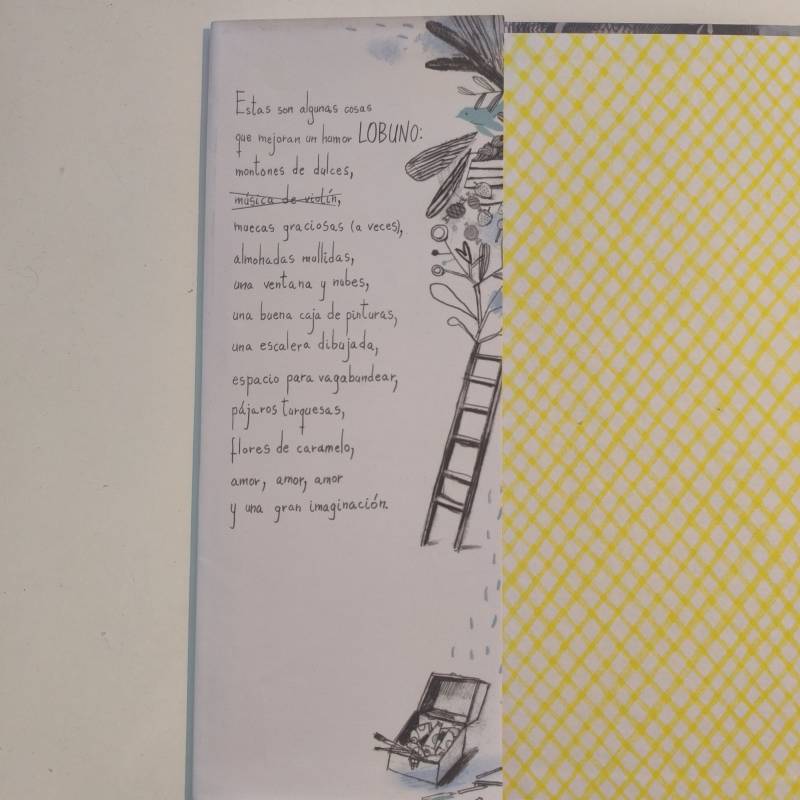 Estas son algunas cosas
que mejoran un humor LOBUNO:
montones de dulces,
música de violín,
muecas graciosas (a veces),
almohadas mullidas,
una ventana y nubes,
una buena caja de pinturas,
una escalera dibujada,
espacio para vagabundear,
pájaros turquesas,
flores de caramelo,
amor, amor, amor
y una gran imaginación.